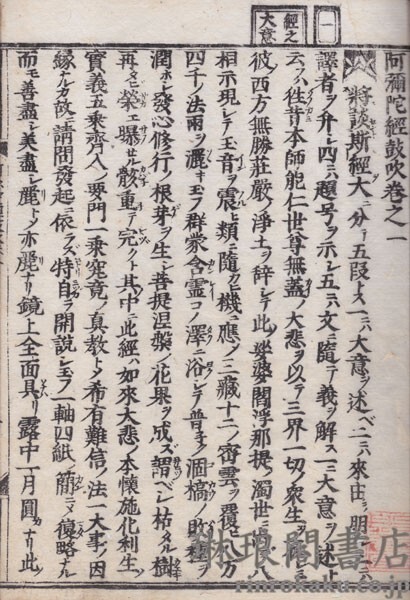 一
經之
大意
阿彌陀經鼓吹卷之一
將談斯經大ニ分テ五段トス一ニハ大意ヲ述ベ二ニハ來由ヲ明シ三ニハ
譯者ヲ弁シ四ニハ題号ヲ示シ五ニハ文ニ隨テ義ヲ解ス一ニ大意ヲ述ト
云フハ往昔本師能仁世尊無蓋ノ大悲ヲ以テ三界一切ノ衆生ヲ
彼西方無勝莊嚴ノ淨土ヲ辞シテ此娑婆閻浮那提ノ濁世ニ八
相示現シテ玉音ヲ震ヒ類ニ隨ヒ機ニ應ノ三藏十二ノ齊雲ヲ覆ヒ八万
四千ノ法雨ヲ灑キ玉フ群蒙含靈コノ澤ニ浴シテ普ク涸槁ノ敗種ヲ
潤ホシ發心修行ノ根芽ヲ生シ菩提涅槃ノ花果ヲ成ズ謂ベシ枯タル樹
再ヒ榮エ曝セル骸重テ完シト其中ニ此經ハ如來大悲ノ本懷施化利生ノ
實義五乘齊入ノ要門一乘究竟ノ真教トノ希有難信ノ法一大事ノ因
縁ナルガ故ニ請問發起ニ依ラズ特自ラ開說シ玉フ一軸四紙ノ簡ニノ復略ナル
而モ善盡シ美盡シ麗トノ亦麗ナリ鏡上全面具リ露中一月圓カナリ此
琳琅閣書店
rinrokaku.co.jp